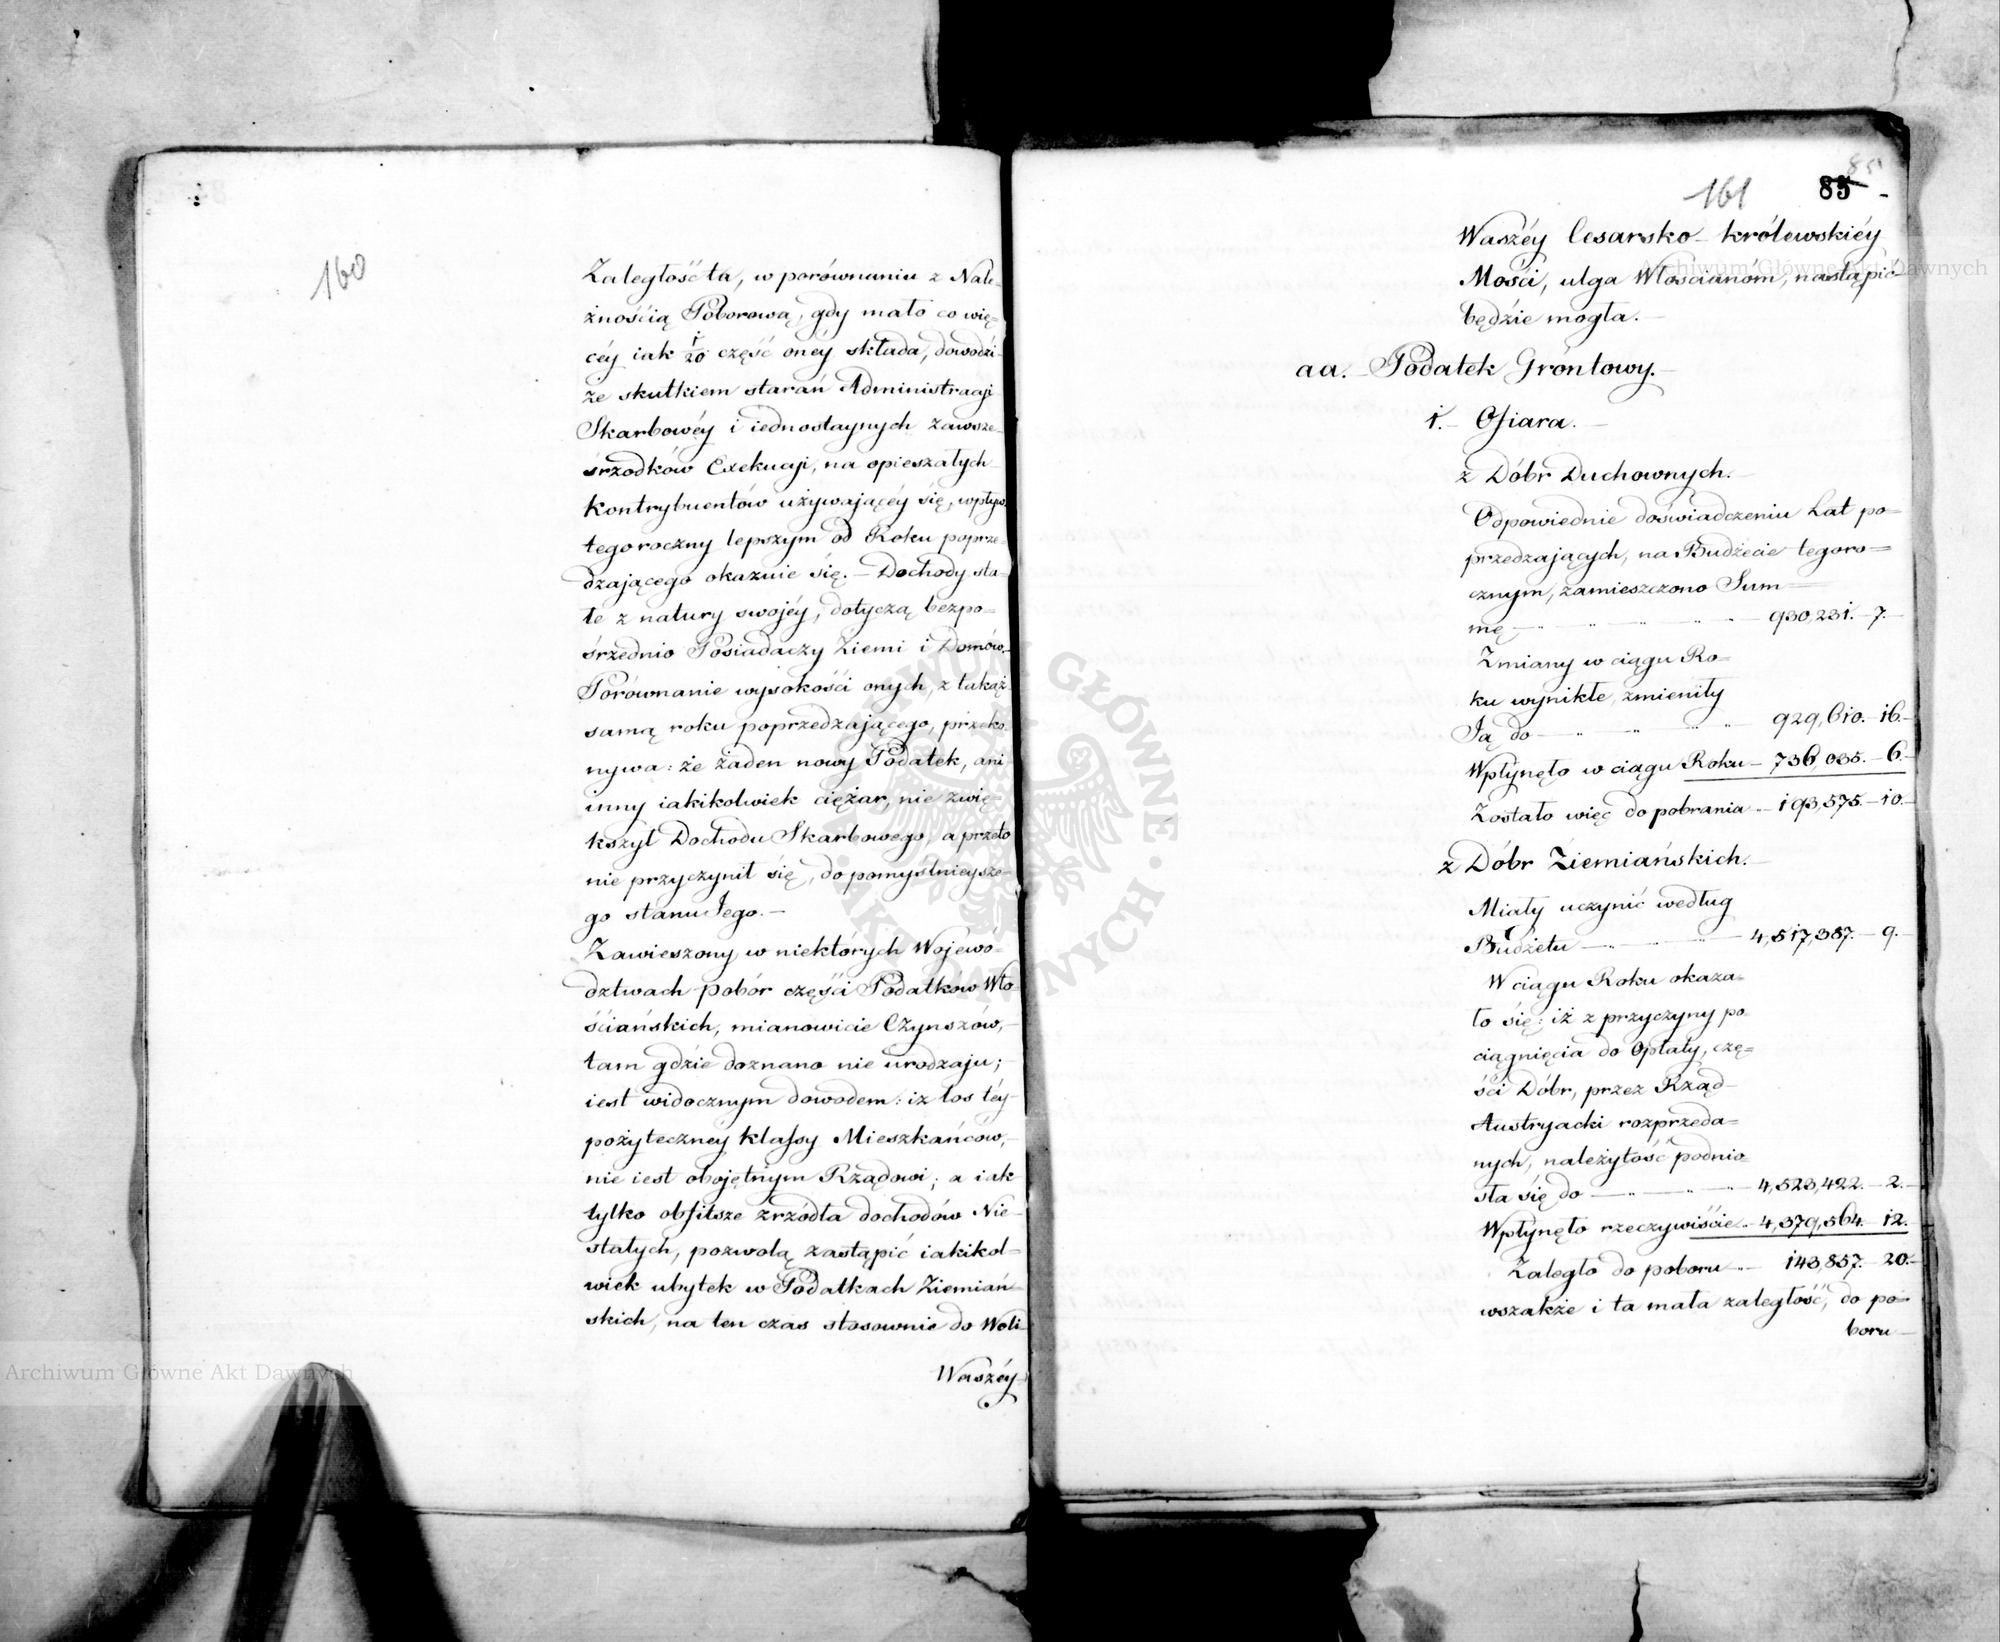 160
Zaległość ta, w porównaniu z Nale-
żnością Poborową, gdy mało co wię-
céy iak 1/20 część onéy składa, dowodzi
że skutkiem starań Administracji
Skarbowéy i iednostaynych zawsze
śrzodków Exekucji, na opieszałych
kontrybuentów używającéy się, wpływ
tegoroczny lepszym od Roku poprze-
dzającego okazuie się. — Dochody sta-
łe z natury swojéy, dotyczą bezpo-
średnio Posiadaczy Ziemi i Domów.
Porównanie wysokości onych, z takąż
samą roku poprzedzającego, przeko
nywa: że żaden nowy Podatek, ani
inny iakikolwiek ciężar, nie zwię-
kszył Dochodu Skarbowego, a przeto
nie przyczynił się, do pomyślnieysze-
go stanu Jego. —
Zawieszony w niektórych Wojewó-
dztwach pobór części Podatków Wło-
ściańskich, mianowicie Czynszów,
tam gdzie doznano nie urodzaju;
iest widocznym dowodem: iż los téy
pożyteczney klassy Mieszkańców,
nie iest obojętnym Rządowi; a iak
tylko obfitsze zrzódła dochodów Nie-
stałych, pozwolą zastąpić iakikol-
wiek ubytek w Podatkach Ziemiań-
skich, na ten czas stosownie do Woli
Waszéy
161 85
85
Waszéy Cesarsko-królewskiéy
Mości, ulga Włościanóm, nastąpić
będzie mogła. —
aa. Podatek Gróntowy. —
1. — Ofiara. —
z Dóbr Duchownych. —
Odpowiednie doświadczeniu Lat po-
przedzających, na Budżecie tegoro-
cznym, zamieszczono Sum-
mę — 930,231. — 7. —
Zmiany w ciągu Ro-
ku wynikłe, zmieniły
Ją do — 929,610. — 16. —
Wpłynęło w ciągu Roku — 736,035. — 6. —
Zostało więc do pobrania — 193,575. — 10. —
z Dóbr Ziemiańskich. —
Miały uczynić według
Budżetu — 4,517,387. — 9. —
W ciągu Roku okaza-
ło się: iż z przyczyny po
ciągnięcia do Opłaty, czę-
ści Dóbr, przez Rząd
Austryacki rozprzeda-
nych, należytość podnio-
sła się do — 4,523,422. — 2. —
Wpłynęło rzeczywiście — 4,379,564. — 12.
Zaległo do poboru — 143,857. — 20. —
wszakże i ta mała zaległość, do po-
boru
Archiwum Główne Akt Dawnych
Archiwum Główne Akt Dawnych
ARCHIWUM GŁÓWNE AKT DAWNYCH